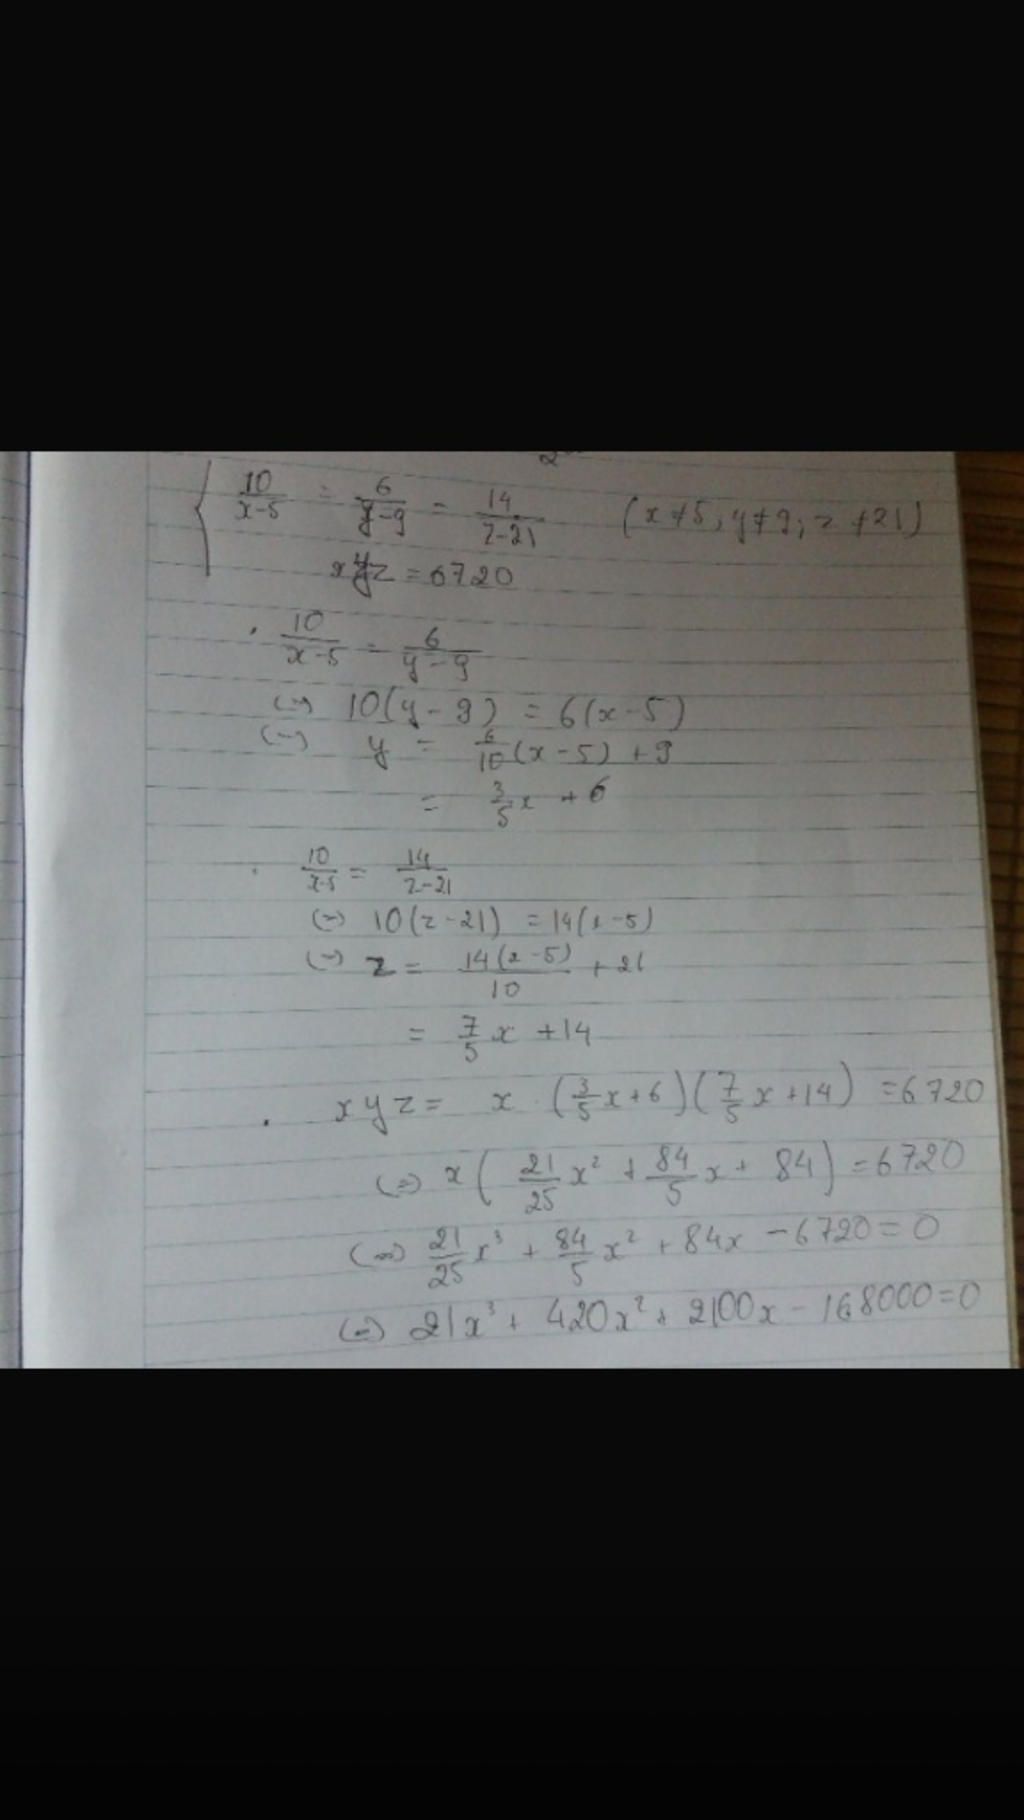 10/(x-5) = 6/(y-9) = 14/(z-21) (x≠5, y≠9, z≠21)
xyz = 6720
· 10/(x-5) = 6/(y-9)
(=) 10(y-9) = 6(x-5)
(=) y = 6/10(x-5) + 9
= 3/5x + 6
· 10/(x-5) = 14/(z-21)
(=) 10(z-21) = 14(x-5)
(=) z = 14(x-5)/10 + 21
= 7/5 x + 14
· xyz = x · (3/5x+6)(7/5x+14) = 6720
(=) x(21/25x² + 84/5x + 84) = 6720
(=) 21/25x³ + 84/5x² + 84x - 6720 = 0
(=) 21x³ + 420x² + 2100x - 168000 = 0